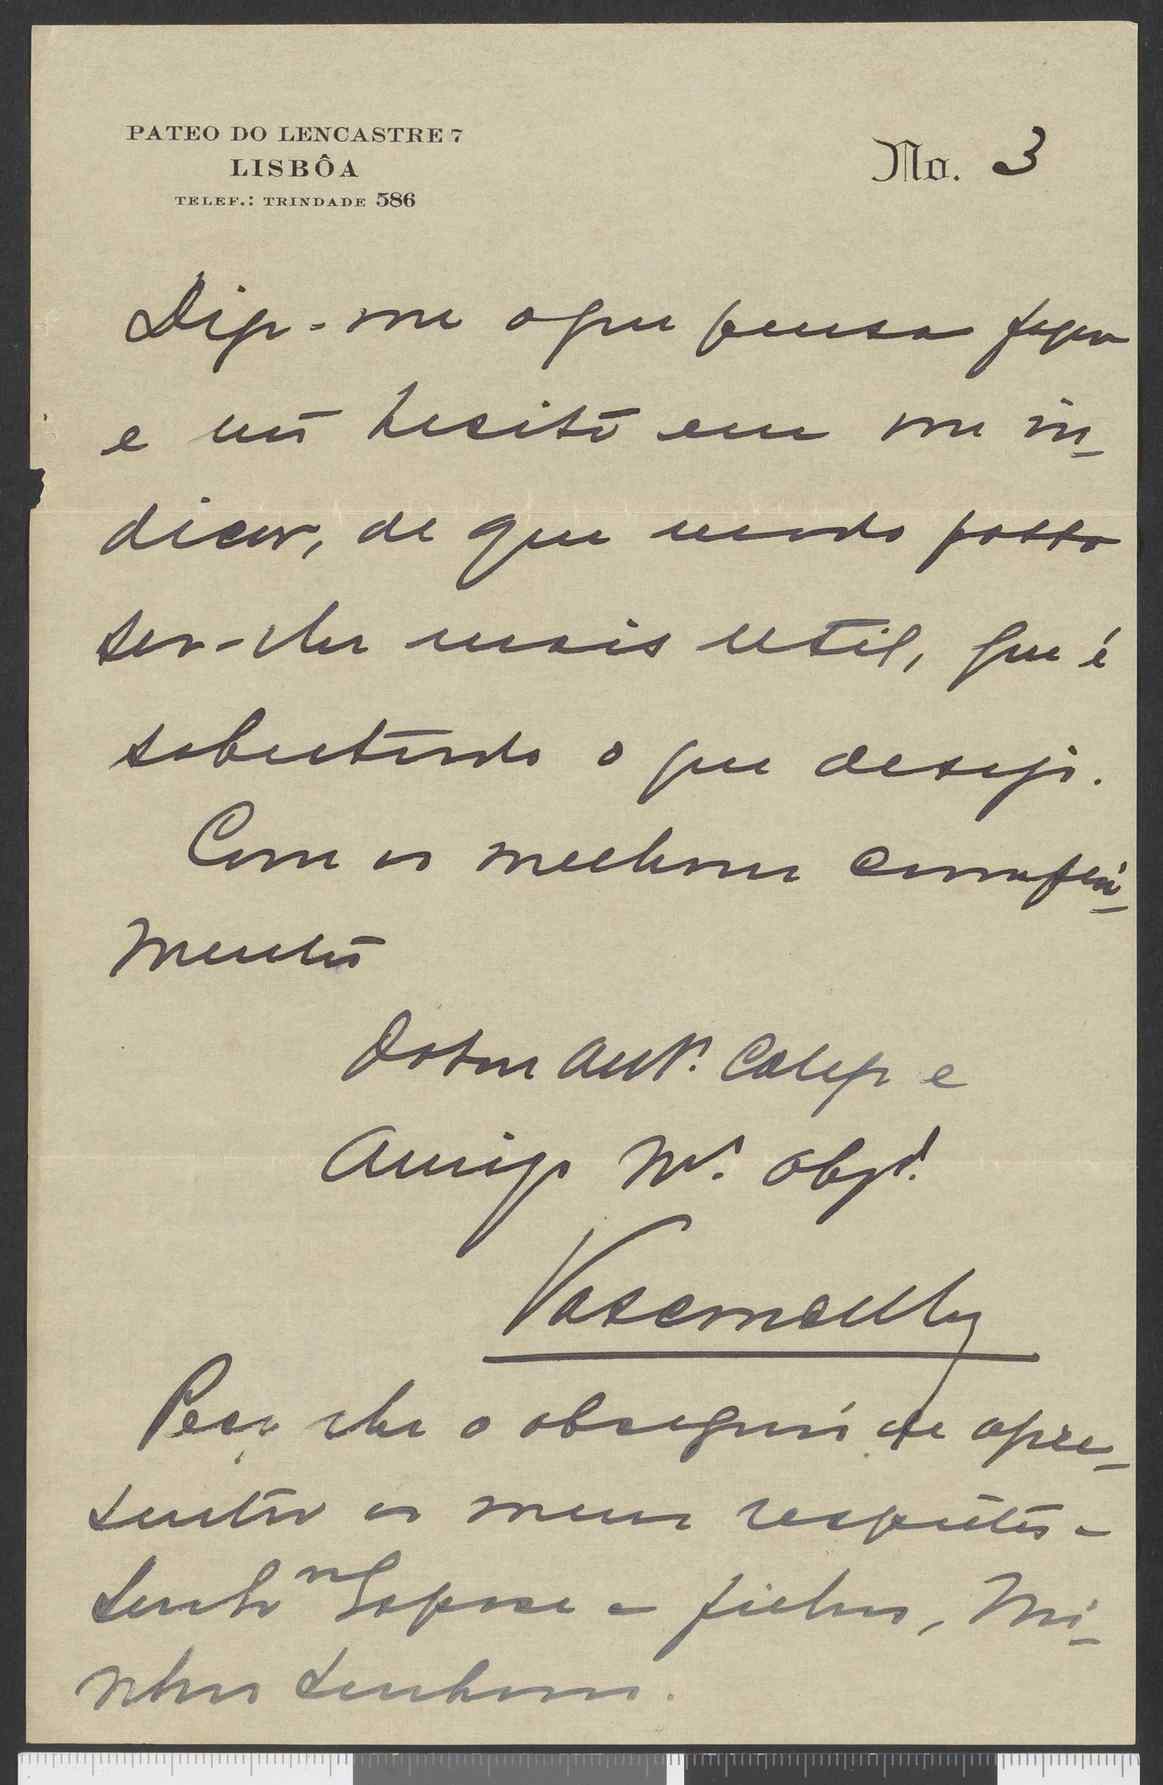 PATEO DO LENCASTRE 7
LISBÔA
TELEF.: TRINDADE 586
No. 3
Diga-me o que pensa fazer
e não hesite em me in-
dicar, de que modo posso
ser-lhe mais util, que é
sobretudo o que desejo.
Com os melhores cumpri-
mentos
De V. Colega e
Amigo Mto. Obgdo.
Peço-lhe o obsequio de apre-
sentar os meus respeitos a
Senhora Esposa e filhas, Mi-
nhas Senhoras.